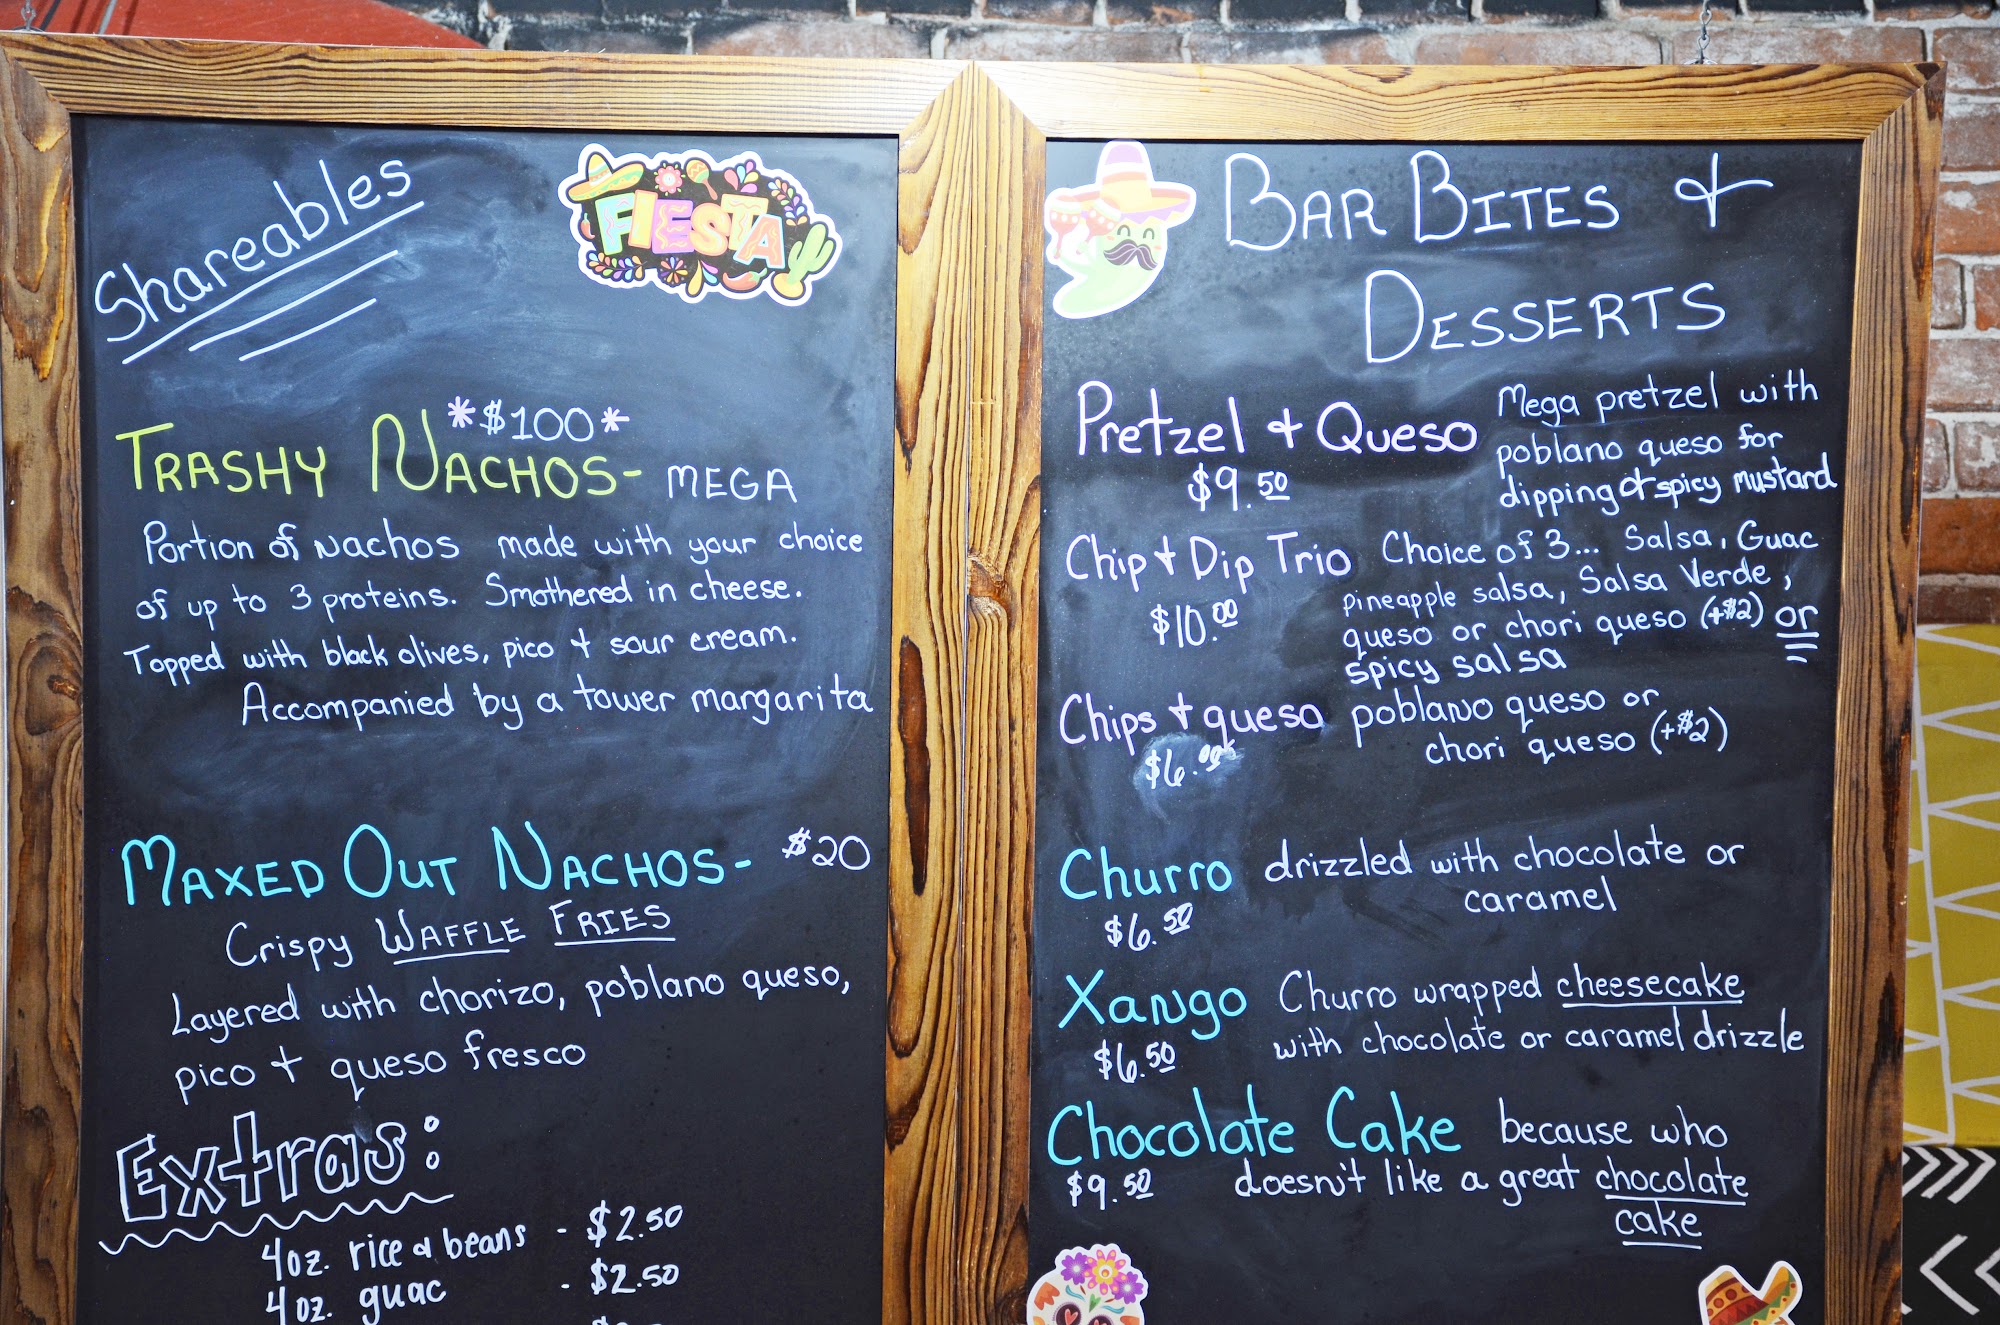 Shareables
FIESTA
*$100*
TRASHY NACHOS- MEGA
Portion of nachos made with your choice
of up to 3 proteins. Smothered in cheese.
Topped with black olives, pico + sour cream.
Accompanied by a tower margarita
MAXED OUT NACHOS- $20
Crispy WAFFLE FRIES
Layered with chorizo, poblano queso,
pico + queso fresco
Extras:
4oz. rice & beans - $2.50
4oz. guac - $2.50
BAR BITES &
DESSERTS
Pretzel & Queso
$9.50
Mega pretzel with
poblano queso for
dipping & spicy mustard
Chip + Dip Trio
$10.00
Choice of 3... Salsa, Guac
pineapple salsa, Salsa Verde,
queso or chori queso (+$2) or
spicy salsa
Chips + queso
$6.00
poblano queso or
chori queso (+$2)
Churro
$6.50
drizzled with chocolate or
caramel
Xango
$6.50
Churro wrapped cheesecake
with chocolate or caramel drizzle
Chocolate Cake
$9.50
because who
doesn't like a great chocolate
cake